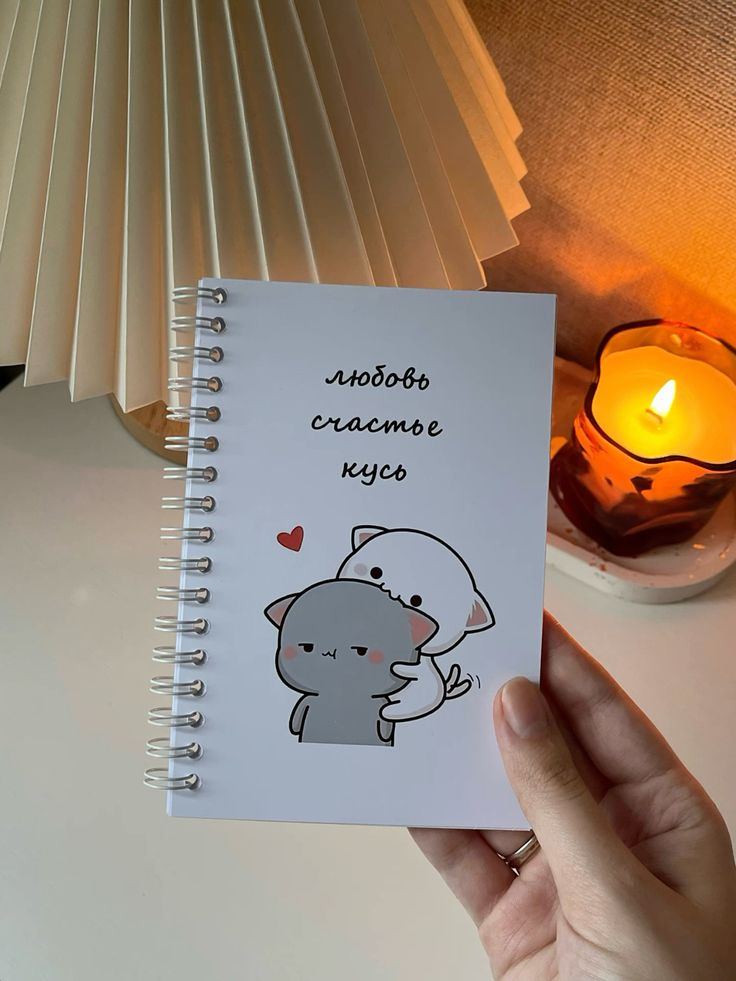 любовь
счастье
кусь